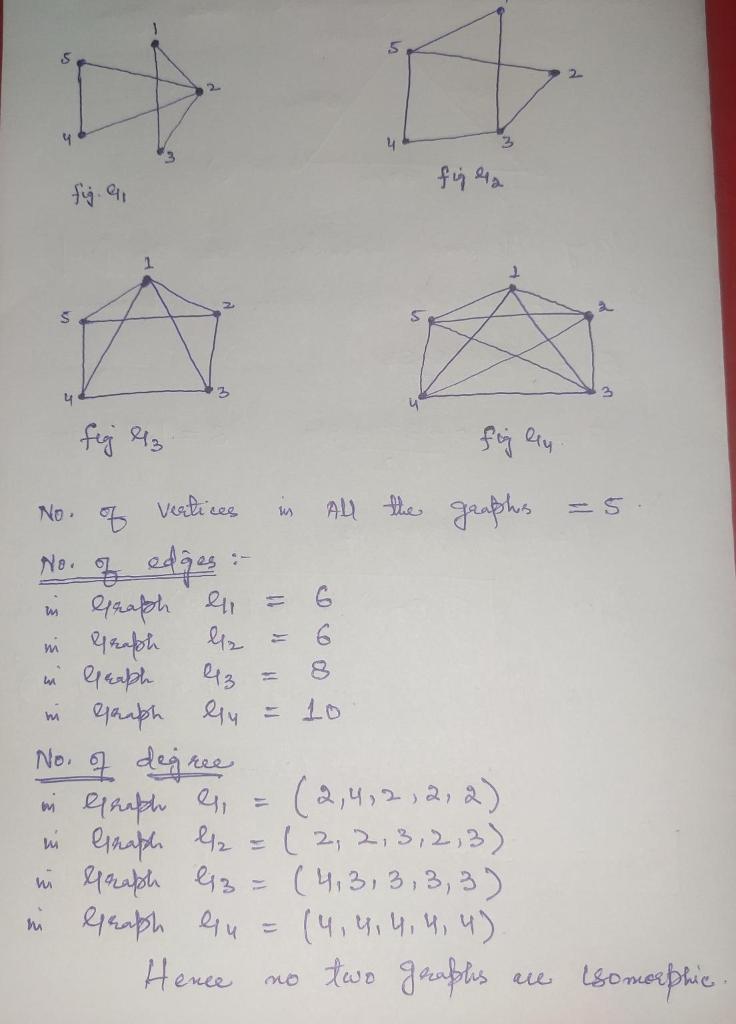 1
5
2
4
3
fig. G1
5
2
4
3
fig G2
1
5
2
4
3
fig G3
1
5
2
4
3
fig G4
No. of vertices in All the graphs = 5.
No. of edges :-
in Graph G1 = 6
in Graph G2 = 6
in Graph G3 = 8
in Graph G4 = 10
No. of degree
in Graph G1 = (2,4,2,2,2)
in Graph G2 = (2,2,3,2,3)
in Graph G3 = (4,3,3,3,3)
in Graph G4 = (4,4,4,4,4)
Hence no two graphs are isomorphic.